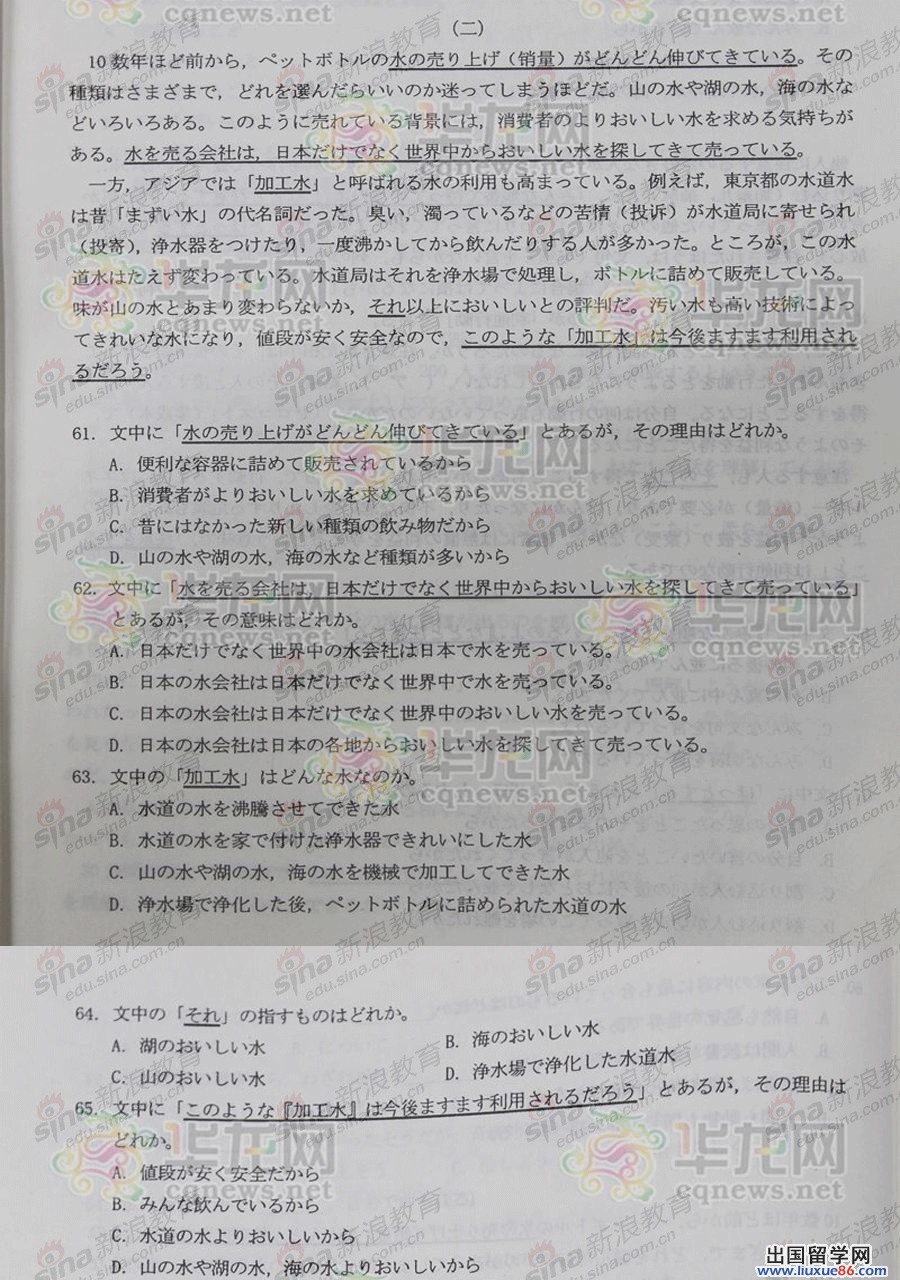 (二)
10数年ほど前から，ペットボトルの水の売り上げ（销量）がどんどん伸びてきている。その
種類はさまざまで，どれを選んだらいいのか迷ってしまうほどだ。山の水や湖の水，海の水な
どいろいろある。このように売れている背景には，消費者のよりおいしい水を求める気持ちが
ある。水を売る会社は，日本だけでなく世界中からおいしい水を探してきて売っている。
一方，アジアでは「加工水」と呼ばれる水の利用も高まっている。例えば，東京都の水道水
は昔「まずい水」の代名詞だった。臭い，濁っているなどの苦情（投诉）が水道局に寄せられ
（投寄），浄水器をつけたり，一度沸かしてから飲んだりする人が多かった。ところが，この水
道水はたえず変わっている。水道局はそれを浄水場で処理し，ボトルに詰めて販売している。
味が山の水とあまり変わらないか，それ以上においしいとの評判だ。汚い水も高い技術によっ
てきれいな水になり，値段が安く安全なので，このような「加工水」は今後ますます利用され
るだろう。
61. 文中に「水の売り上げがどんどん伸びてきている」とあるが，その理由はどれか。
A. 便利な容器に詰めて販売されているから
B. 消費者がよりおいしい水を求めているから
C. 昔にはなかった新しい種類の飲み物だから
D. 山の水や湖の水，海の水など種類が多いから
62. 文中に「水を売る会社は，日本だけでなく世界中からおいしい水を探してきて売っている」
とあるが，その意味はどれか。
A. 日本だけでなく世界中の水会社は日本で水を売っている。
B. 日本の水会社は日本だけでなく世界中で水を売っている。
C. 日本の水会社は日本だけでなく世界中のおいしい水を売っている。
D. 日本の水会社は日本の各地からおいしい水を探してきて売っている。
63. 文中の「加工水」はどんな水なのか。
A. 水道の水を沸騰させてできた水
B. 水道の水を家で付けた浄水器できれいにした水
C. 山の水や湖の水，海の水を機械で加工してできた水
D. 浄水場で浄化した後，ペットボトルに詰められた水道の水
64. 文中の「それ」の指すものはどれか。
A. 湖のおいしい水 B. 海のおいしい水
C. 山のおいしい水 D. 浄水場で浄化した水道水
65. 文中に「このような『加工水』は今後ますます利用されるだろう」とあるが，その理由は
どれか。
A. 値段が安く安全だから
B. みんな飲んでいるから
C. 水道の水よりおいしいから
D. 山の水や湖の水，海の水よりおいしいから
华龙网
cqnews.net
sina新浪教育
edu.sina.com.cn
出国留学网
www.liuxue86.com